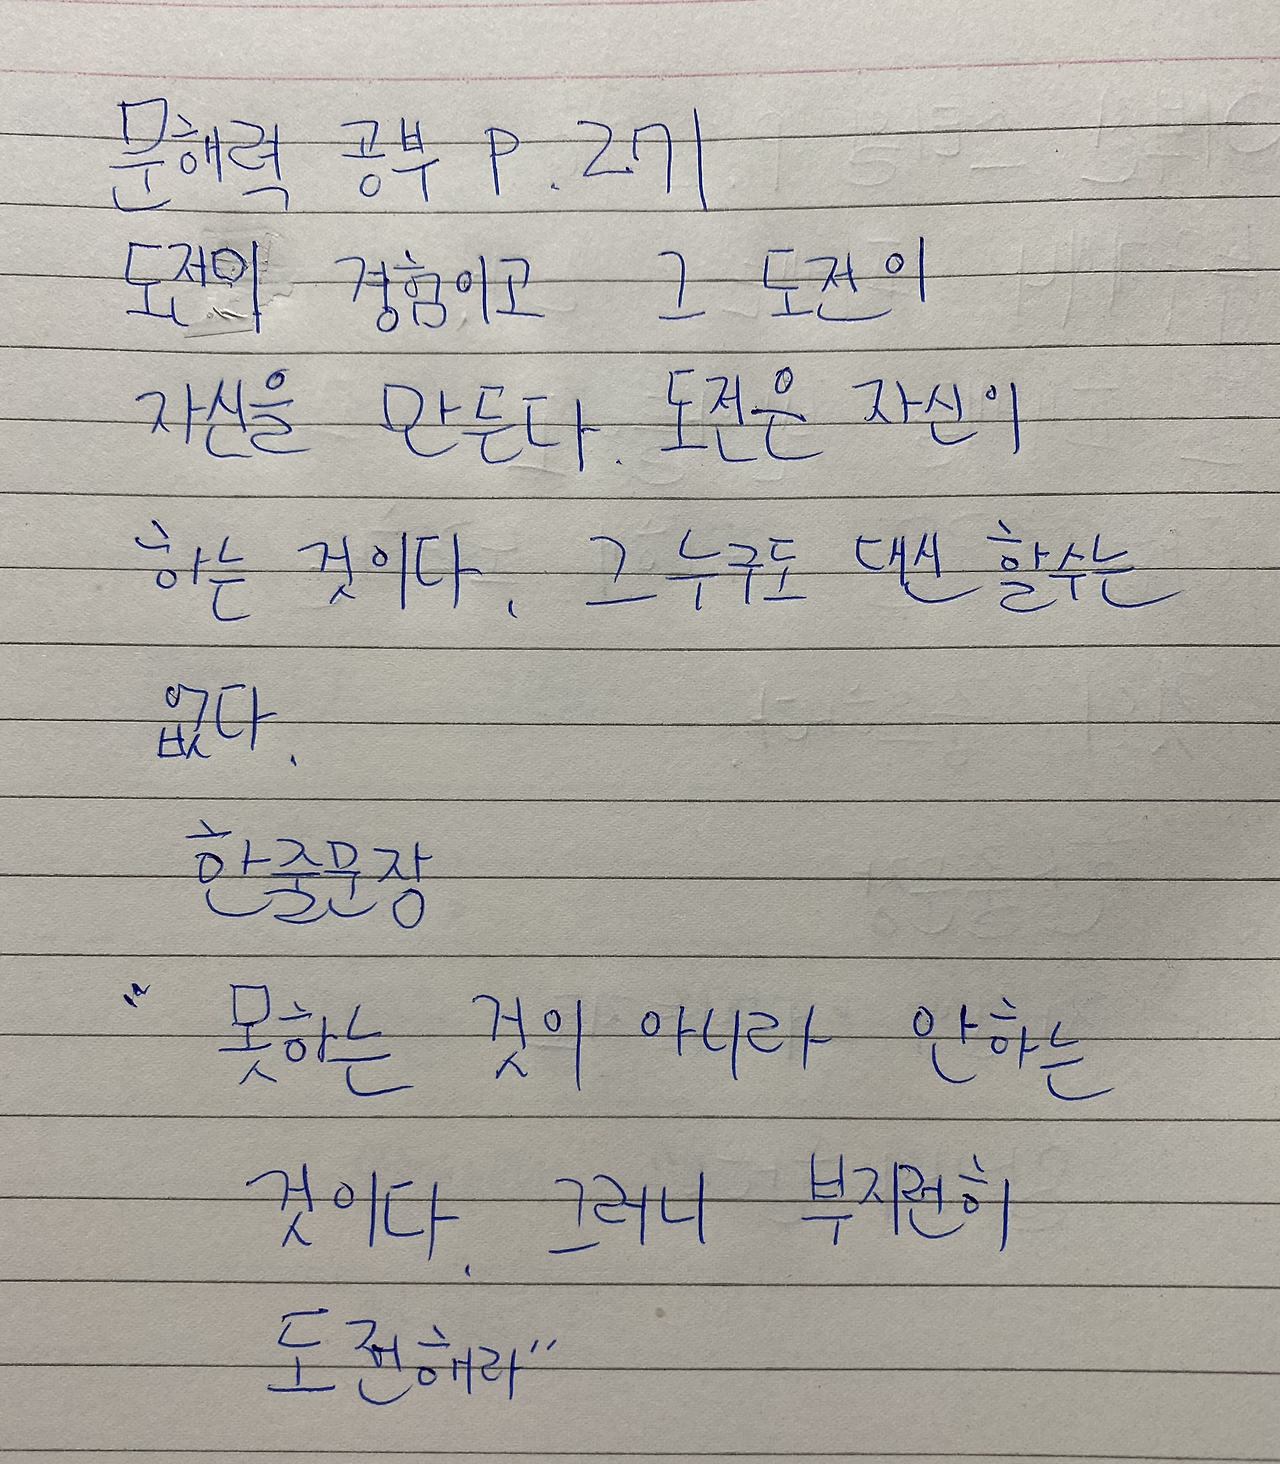 문해력 공부 P. 271
도전이 경험이고 그 도전이
자신을 만든다. 도전은 자신이
하는 것이다. 그 누구도 대신 할수는
없다.
한줄문장
" 못하는 것이 아니라 안하는
것이다. 그러니 부지런히
도전해라"